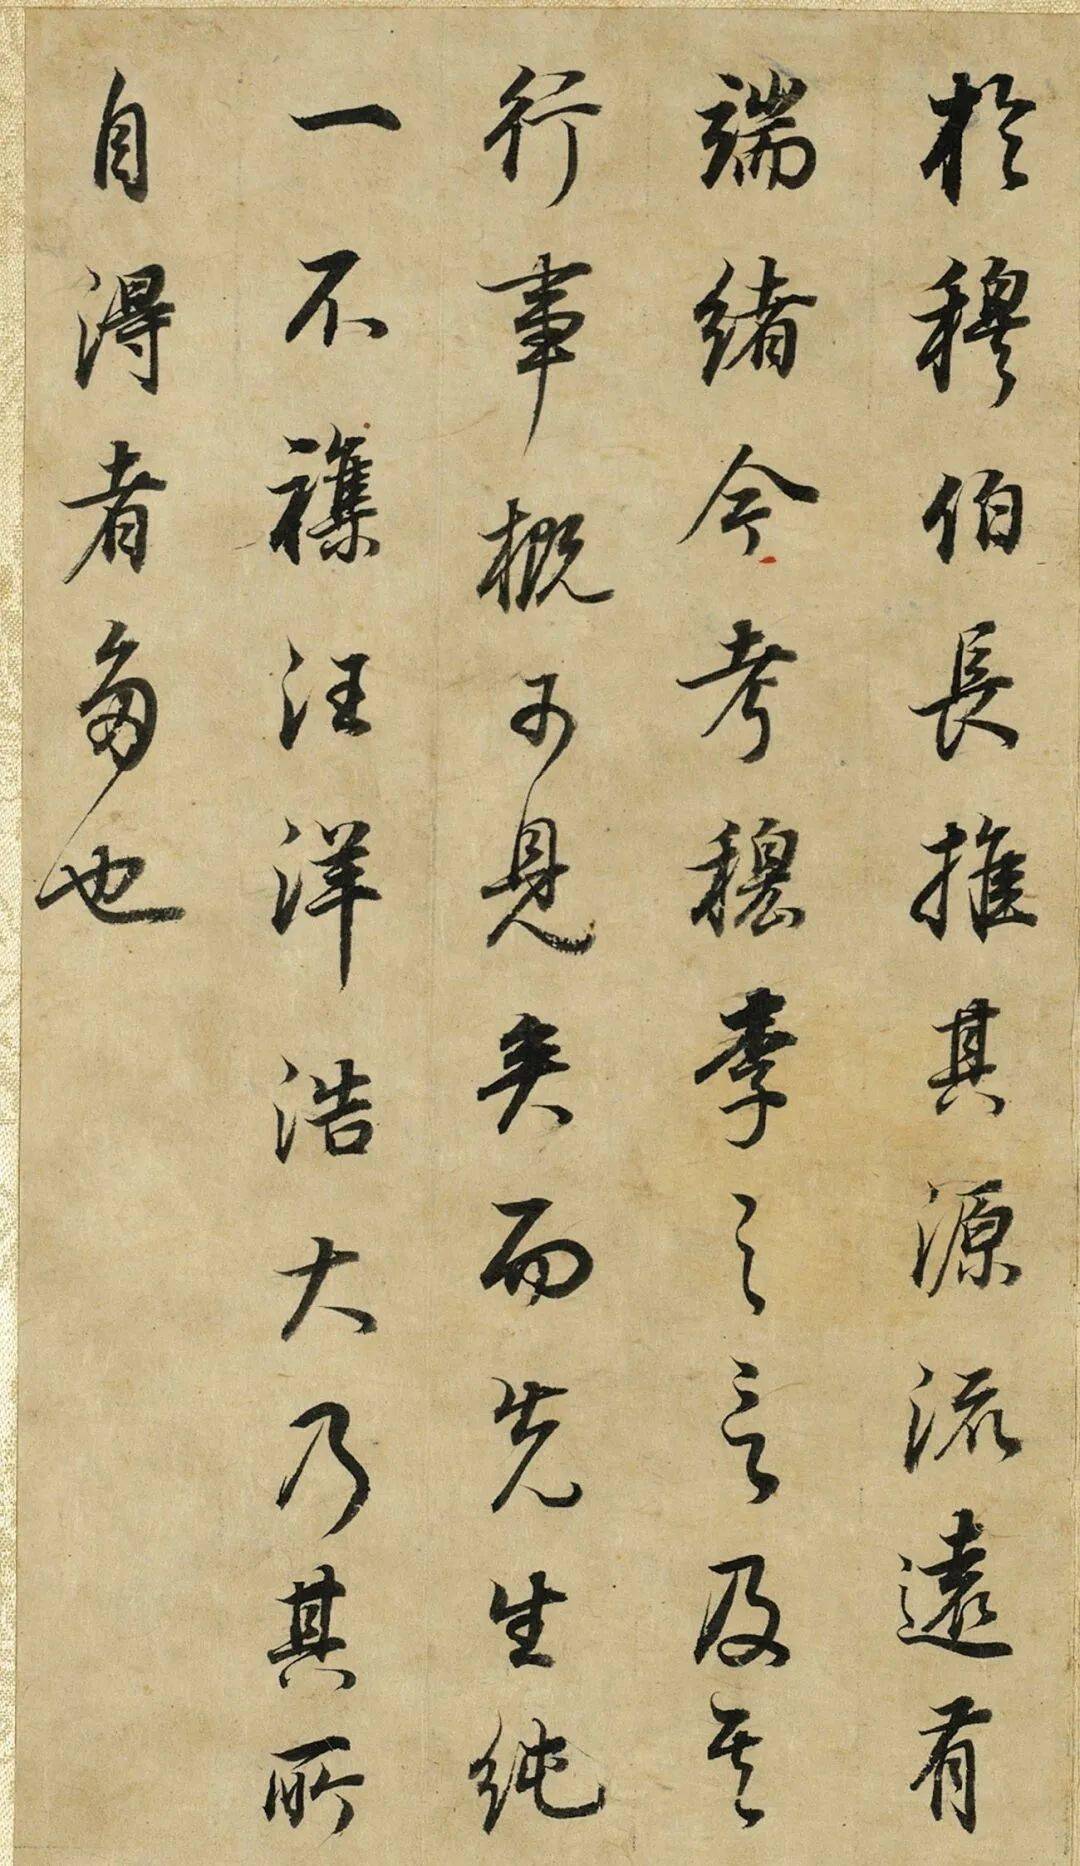 於穆伯長推其源流遠有
端緒今考穆李之言及其
行事概可見矣而先生純
一不襍汪洋浩大乃其所
自得者多也